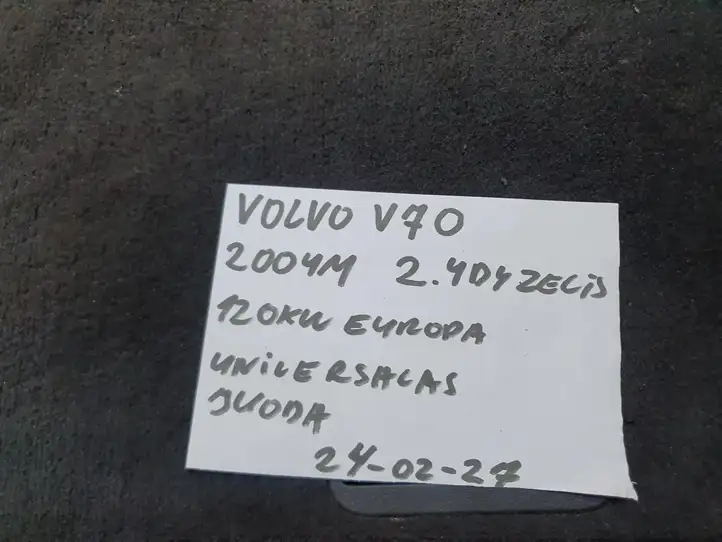 VOLVO V70
2004M 2.4DYZELIS
120KW EUROPA
UNIVERSALAS
JUODA
24-02-27